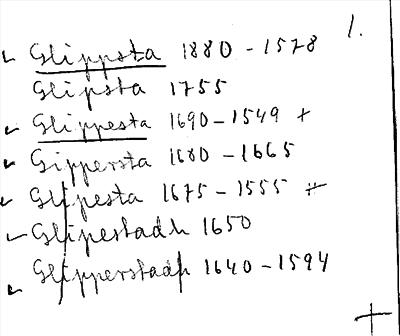 1.
Glippsta 1880 - 1578
Glipsta 1755
Glippesta 1690 - 1549 +
Gippersta 1680 - 1665
Glipesta 1675 - 1555 +
Glipestadh 1650
Glipperstadh 1640 - 1594